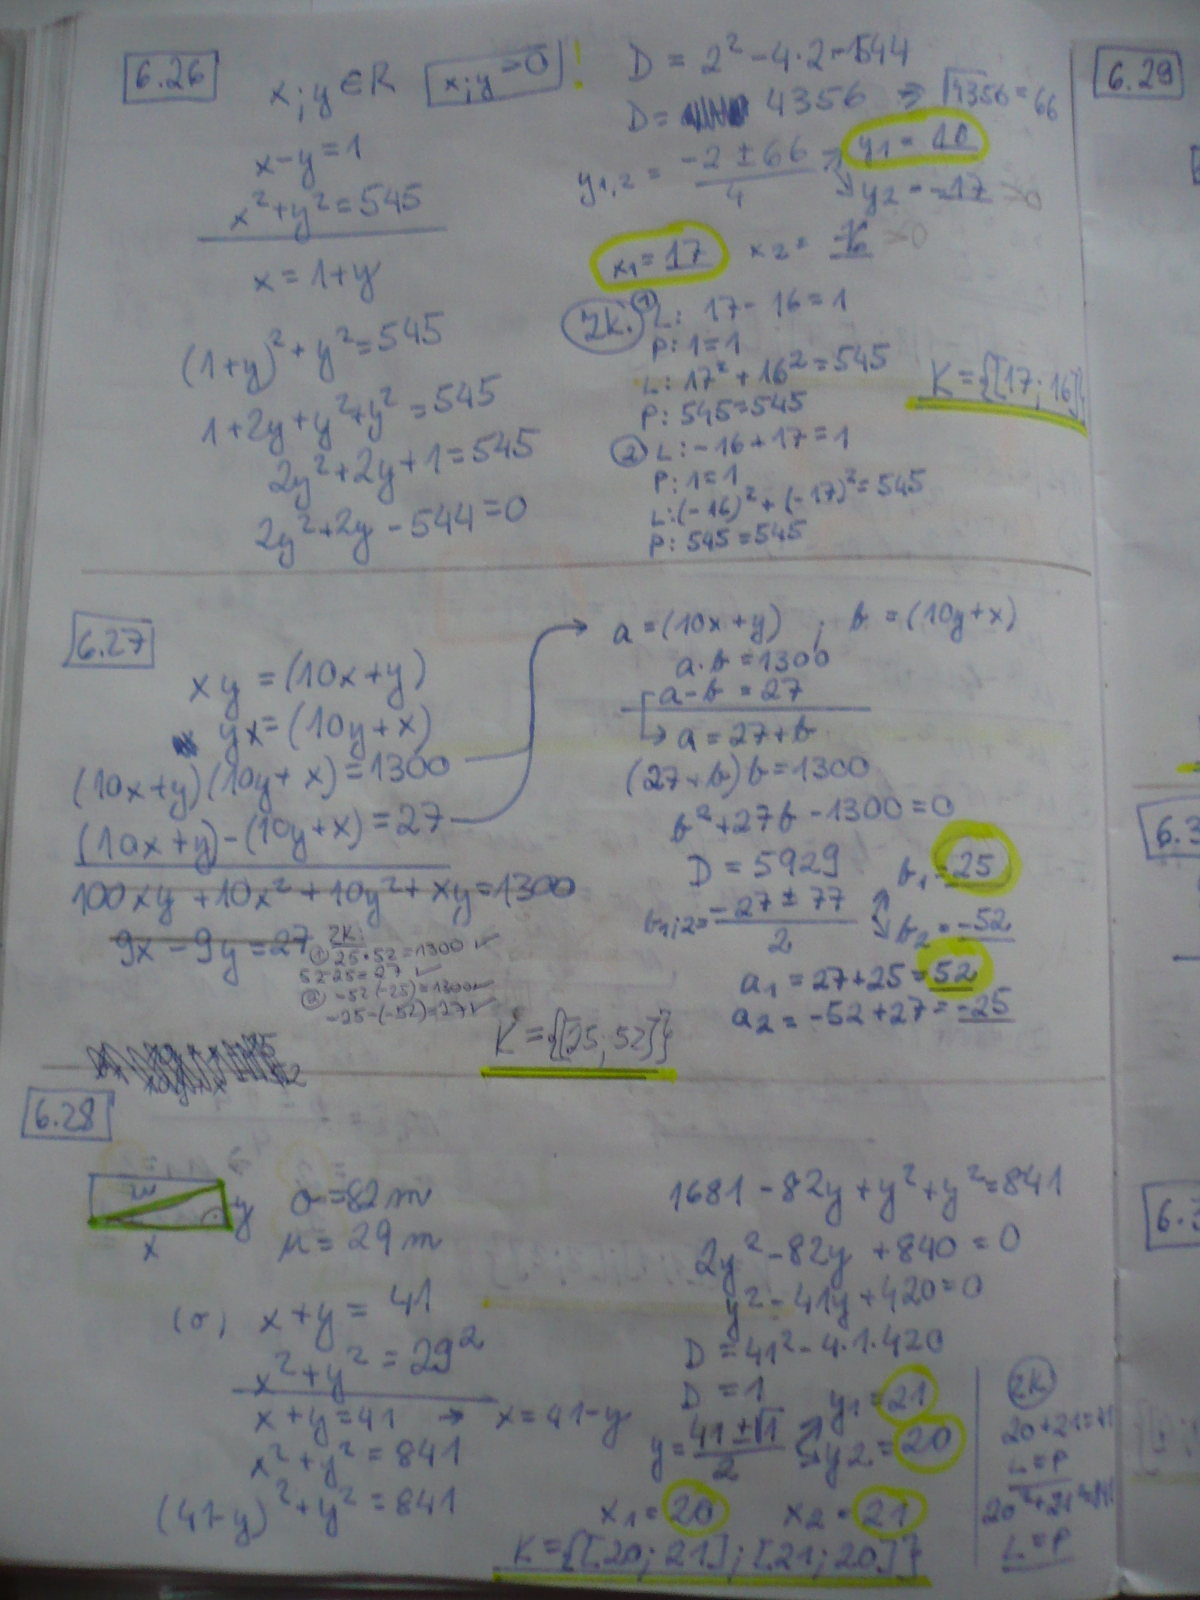 6.26
x;y ∈ R
x;y > 0 !
x-y=1
x²+y²=545
x=1+y
(1+y)²+y²=545
1+2y+y²+y²=545
2y²+2y+1=545
2y²+2y-544=0
D = 2²-4·2·-544
D = 4356 => √4356=66
y1,2 = -2±66
4
y2=-17 >0
x1=17 x2=
Zk.
① L: 17-16=1
P: 1=1
L: 17²+16²=545
P: 545=545
② L: -16+17=1
P: 1=1
L:(-16)²+(-17)²=545
P: 545=545
K={[17;16]}
6.27
xy =(10x+y)
yx=(10y+x)
(10x+y)(10y+x)=1300
(10x+y)-(10y+x)=27
100xy+10x²+10y²+xy=1300
9x-9y=27
ZK:
① 25·52=1300 ✓
52-25=27 ✓
② -52(-25)=1300 ✓
-25-(-52)=27 ✓
a=(10x+y) ; b=(10y+x)
a·b=1300
a-b=27
a=27+b
(27+b)b=1300
b²+27b-1300=0
D=5929
b1=25
b1;2=-27±77
2
b2=-52
a1=27+25=52
a2=-52+27=-25
K={[25;52]}
6.28
u
y
x
o=82m
u=29m
(o) x+y=41
x²+y²=29²
x+y=41 → x=41-y
x²+y²=841
(41-y)²+y²=841
1681-82y+y²+y²=841
2y²-82y+840=0
y²-41y+420=0
D=41²-4·1·420
D=1
y=41±√1
2
y1=21
y2=20
x1=20 x2=21
K={[20;21];[21;20]}
ZK
20+21=41
L=P
20²+21²=841
L=P
6.29
6.3
6.3